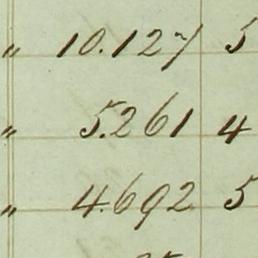 " 10.127 5
" 5.261 4
" 4.692 5